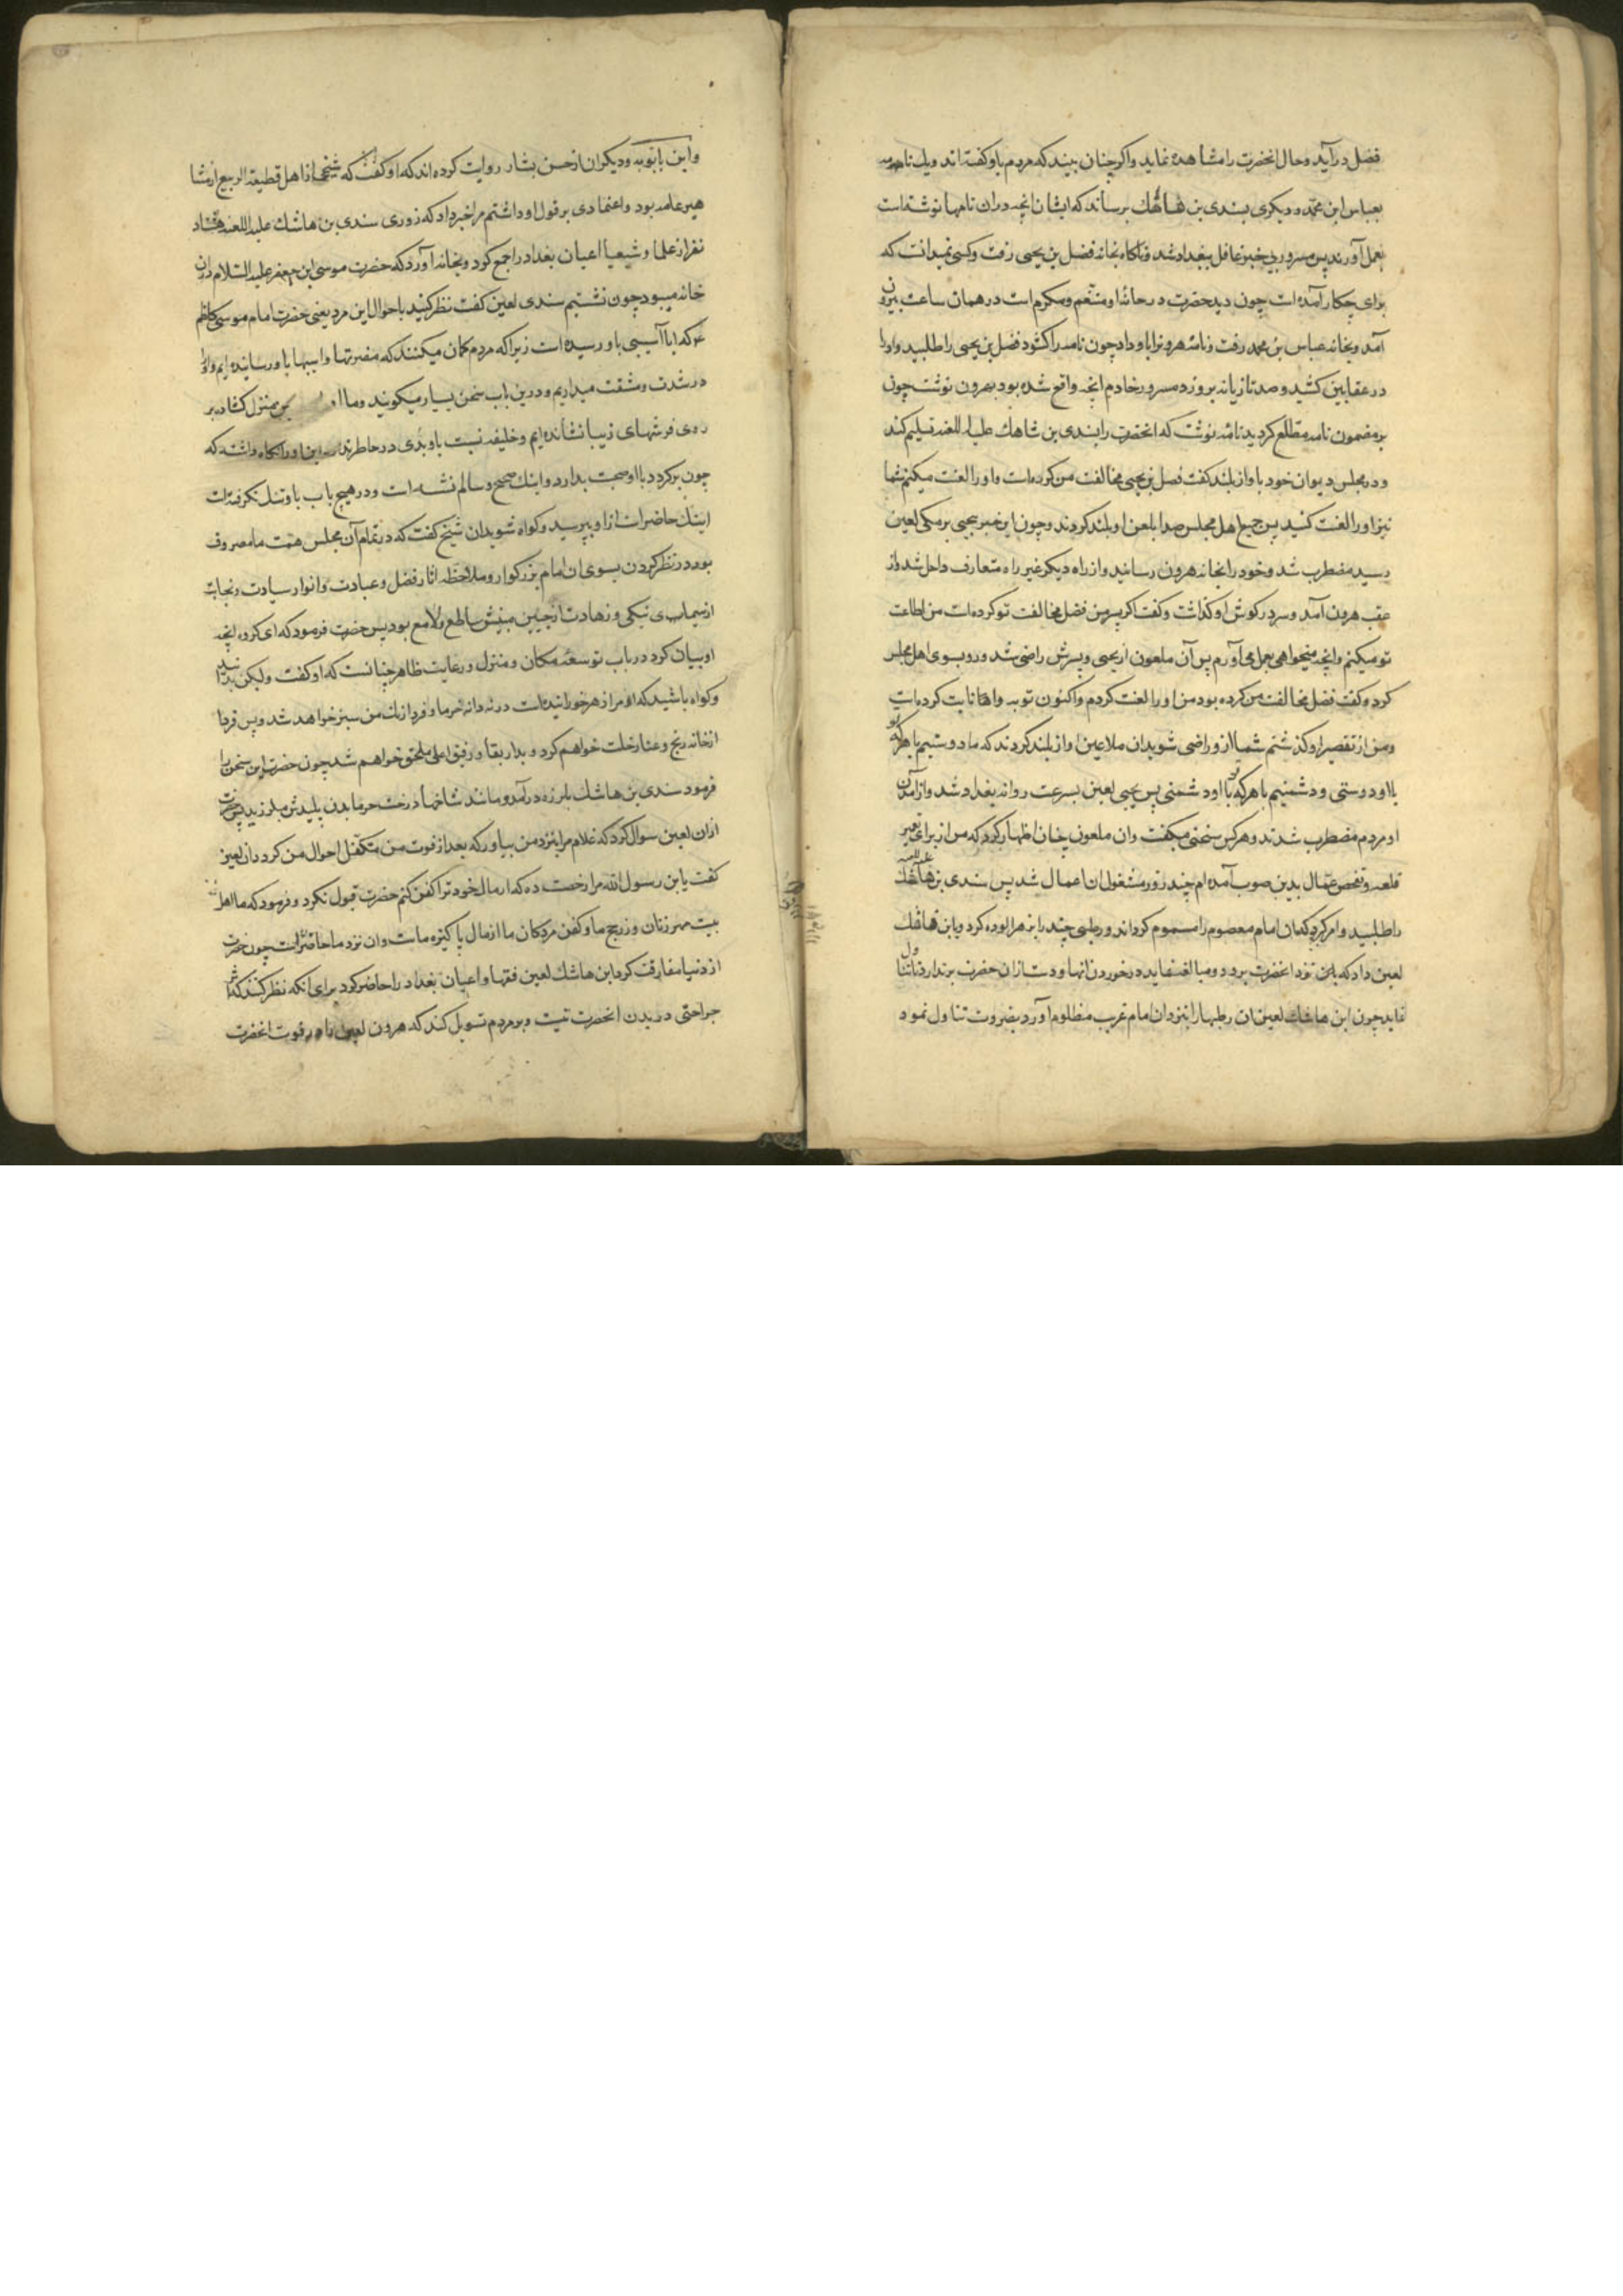 فضل درآید و حال انحضرت را مشاهده نماید و اکر چنان بیند که مردم باو کفته اند و یك نامه
بعباس ابن محمد و دیکری بسندی بن هاشك برساند که ایشان انچه در ان نامها نوشته است
بعمل آورند پس مسرور بی خبر غافل ببغداد شد و ناکاه بخانه فضل بن یحیی رفت و کسی نمیدانست که
برای چکار آمده است چون دید حضرت در خانه او متنعم و مکرم است در همان ساعت بیرون
آمد و بخانه عباس بن محمد رفت و نامه هرون را باو داد چون نامه را کشود فضل بن یحیی را طلبید و اورا
در عقابین کشید و صد تازیانه بر او زد مسرور خادم انچه واقع شده بود بهرون نوشت چون
بر مضمون نامه مطلع کردید نامه نوشت که انحضرت را بسندی بن شاهك علیه اللعنه تسلیم کند
و در مجلس دیوان خود باواز بلند کفت فضل بن یحیی مخالفت من کرده است و اورا لعنت میکنم شما
نیز اورا لعنت کنید پس جمیع اهل مجلس صدا بلعن او بلند کردند و چون این خبر بیحیی برمکی لعین
رسید مضطرب شد و خود را بخانه هرون رسانید و از راه دیکر غیر راه متعارف داخل شد و از
عقب هرون آمد و سر در کوش او کذاشت و کفت اکر پسر من فضل مخالفت تو کرده است من اطاعت
تو میکنم و انچه میخواهی بعمل می آورم پس آن ملعون از یحیی و پسرش راضی شد و رو بسوی اهل مجلس
کرد و کفت فضل مخالفت من کرده بود من اورا لعنت کردم و اکنون توبه و انابت کرده است
و من از تقصیر او کذشتم شما از و راضی شوید ان ملاعین اواز بلند کردند که ما دوستیم با هر که تو
با او دوستی و دشمنیم با هر که تو با او دشمنی پس یحیی لعین بسرعت روانه بغداد شد و از آمدن
او مردم مضطرب شدند و هر کس سخنی میکفت و ان ملعون چنان اظهار کرد که من از برای تعمیر
قلعه و تفحص عمال بدین صوب آمده ام چند روز مشغول ان اعمال شد پس سندی بن هاشك علیه اللعنه
را طلبید و امر کرد که ان امام معصوم را مسموم کرداند و رطبی چند را بزهر الوده کرد و بابن هاشك
لعین داد که باین نزد انحضرت برد و مبالغه نماید در خوردن انها و دست از ان حضرت بر ندارد تا تناول
نماید چون ابن هاشك لعین ان رطبها را بنزد ان امام غریب مظلوم آورد بضرورت تناول نمود
و ابن بابویه و دیکران از حسن بشار روایت کرده اند که او کفت که شیخی از اهل قطیعة الربیع از مشا
هیر عامه بود و اعتمادی بر قول او داشتم مرا خبر داد که روزی سندی بن هاشك علیه اللعنه هشتاد
نفر از علما و شیعیا اعیان بغداد را جمع کرد و بخانه آورد که حضرت موسی ابن جعفر علیه السلام در ان
خانه میبود چون نشستیم سندی لعین کفت نظر کنید باحوال این مرد یعنی حضرت امام موسی کاظم
ع که ایا آسیبی باو رسیده است زیرا که مردم کمان میکنند که مضرتها و اسیبها باو رسانیده ایم و اورا
در شدت و مشقت میداریم و در ین باب سخن بسیار میکویند و ما او بر منزل کشاده بر
روی فرشهای زیبا نشانده ایم و خلیفه نسبت باو بدی در خاطر ندارد اورا نکاه داشته که
چون بر کردد با او صحبت بدارد و اینك صحیح و سالم نشسته است و در هیچ باب باو تنك نکرفته است
اینك حاضر است از او بپرسید و کواه شوید ان شیخ کفت که در تمام آن مجلس همت ما مصروف
بود در نظر کردن بسوی ان امام بزرکوار و ملاحظه اثار فضل و عبادت و انوار سیادت و نجابت
از سیمای نیکی و زهادت از جبین مبینش ساطع و لامع بود پس حضرت فرمود که ای کروه انچه
او بیان کرد در باب توسعه مکان و منزل و رعایت ظاهر چنانست که او کفت ولیکن بدانید
و کواه باشید که او مرا زهر خورانیده است در نه دانه خرما و فردا رنك من سبز خواهد شد و پس فردا
از خانه رنج و عنا رحلت خواهم کرد و بدار بقا و رفیق اعلی ملحق خواهم شد چون حضرت این سخن را
فرمود سندی بن هاشك بلرزه درآمد و مانند شاخهاء درخت خرما بدن پلیدش میلرزید پس حضرت
از ان لعین سوال کرد که غلام مرا بنزد من بیاور که بعد از فوت من متکفل احوال من کردد ان لعین
کفت یا بن رسول الله مرا رخصت ده که از مال خود ترا کفن کنم حضرت قبول نکرد و فرمود که ما اهل
بیت مهر زنان و زر حج ما و کفن مردکان ما از مال پاکیزه ماست و ان نزد ما حاضر است چون حضرت
از دنیا مفارقت کرد ابن هاشك لعین فقها و اعیان بغداد را حاضر کرد برای انکه نظر کنند که اثر
جراحتی در بدن انحضرت نیست و بر مردم تسویل کند که هرون لعین را در فوت انحضرت